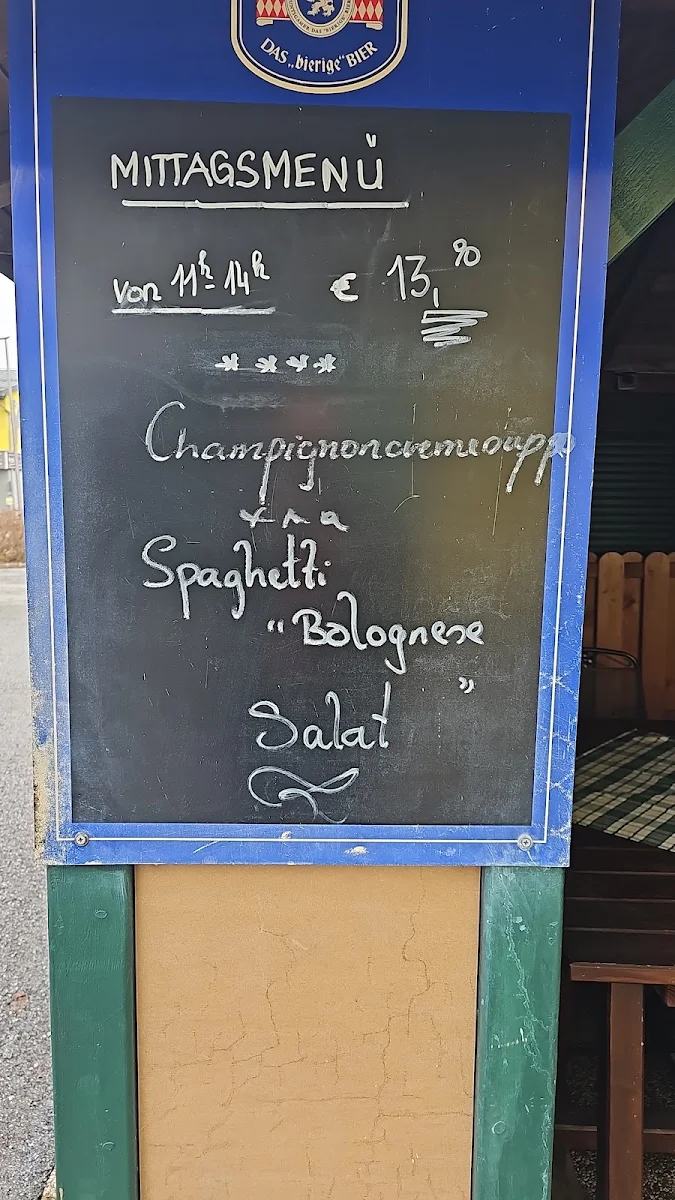 DAS „bierige" BIER
MITTAGSMENÜ
von 11h - 14h € 13,90
****
Champignoncremesuppe
***
Spaghetti
"Bolognese
"
Salat